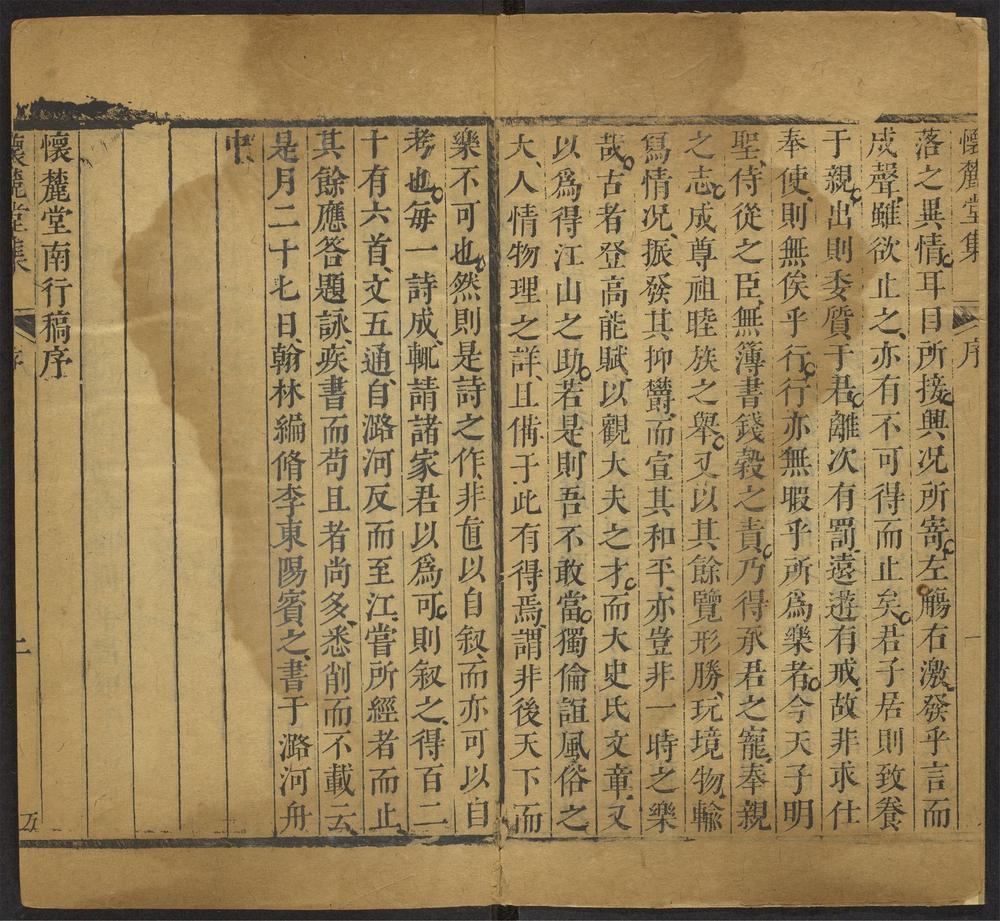 懷麓堂集 序 一
落之異情耳目所接興况所寄左觸右激發乎言而
成聲雖欲止之亦有不可得而止矣君子居則致養
于親出則委質于君離次有罰遠遊有戒故非求仕
奉使則無俟乎行行亦無暇乎所爲樂者今天子明
聖侍從之臣無簿書錢穀之責乃得承君之寵奉親
之志成尊祖睦族之舉又以其餘覽形勝玩境物輸
寫情况振發其抑欝而宣其和平亦豈非一時之樂
哉古者登高能賦以觀大夫之才而大史氏文章又
以爲得江山之助若是則吾不敢當獨倫誼風俗之
大人情物理之詳且偹于此有得焉謂非後天下而
樂不可也然則是詩之作非直以自叙而亦可以自
考也每一詩成輒請諸家君以爲可則叙之得百二
十有六首文五通自潞河反而至江嘗所經者而止
其餘應答題詠疾書而苟且者尚多悉削而不載云
是月二十七日翰林編脩李東陽賓之書于潞河舟
中
懷麓堂南行稿序
懷麓堂集 序 二